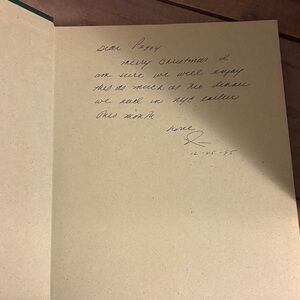 Dear Poppy
Merry Christmas I
am sure we will enjoy
this as much as the dinner
we had in NYC earlier
this month
Love
12-25-95